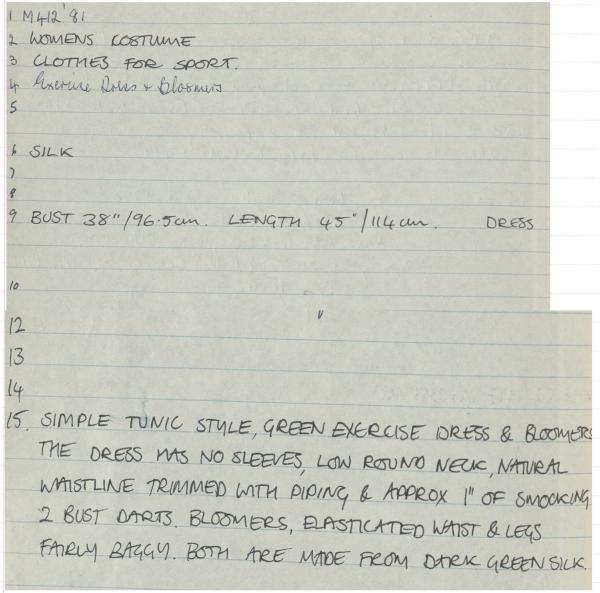 1 M412'81
2 WOMENS COSTUME
3 CLOTHES FOR SPORT.
4 Exercise Dress & Bloomers
5
6 SILK
7
8
9 BUST 38"/96.5cm. LENGTH 45"/114cm. DRESS
10
12
13
14
15. SIMPLE TUNIC STYLE, GREEN EXERCISE DRESS & BLOOMERS
THE DRESS HAS NO SLEEVES, LOW ROUND NECK, NATURAL
WAISTLINE TRIMMED WITH PIPING & APPROX 1" OF SMOCKING
2 BUST DARTS. BLOOMERS, ELASTICATED WAIST & LEGS
FAIRLY BAGGY. BOTH ARE MADE FROM DARK GREEN SILK.